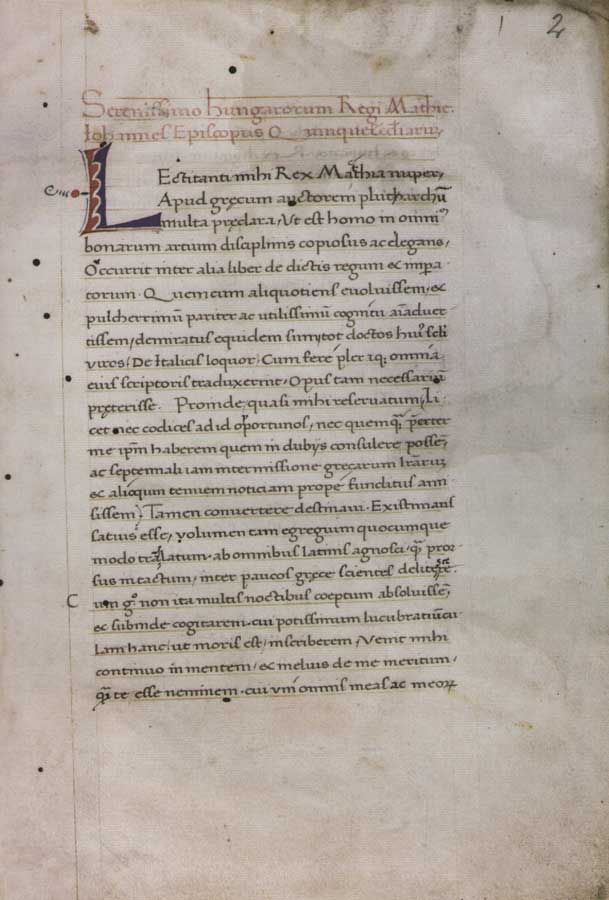 1 2
Serenissimo hungarorum Regi Mathie.
Iohannes Episcopus Quinqueecclesiarum
Lectitanti mihi Rex Mathia nuper,
Apud grecum auctorem plutharchū
multa preclara, Ut est homo in omni
bonarum artium disciplinis copiosus ac elegans,
Occurrit inter alia liber de dictis regum et impera
torum. Quem cum aliquotiens evoluissem, et
pulcherrimū pariter ac utilissimū cognitu aīadver
tissem, demiratus equidem sum, tot doctos
viros, De Italicis loquor, Cum fere omnia
eius scriptoris traduxerint, Opus tam necessariū
preterisse. Proinde quasi mihi reservatum, Li
cet nec codices ad id oportunos, nec quemq̄ preter
me ipm̄ haberem quem in dubijs consulere possem,
ac septennali iam intermissione grecarum lr̄arum
et alioqui tenuem noticiam prope funditus ami
sissem, Tamen convertere destinavi. Existimans
satius esse, volumen tam egregium quocumque
modo translatum, ab omnibus latinis agnosci, q̄ pror
sus intactum, inter paucos grece scientes delitescere.
Cum g° non ita multis noctibus coeptum absolvissem,
et subinde cogitarem, cui potissimum lucubratiūcu
lam hanc, ut moris est, inscriberem, Venit mihi
continuo in mentem, et melius de me meritum,
q̄ te esse neminem, cui uni omnis meas ac meorꝝ